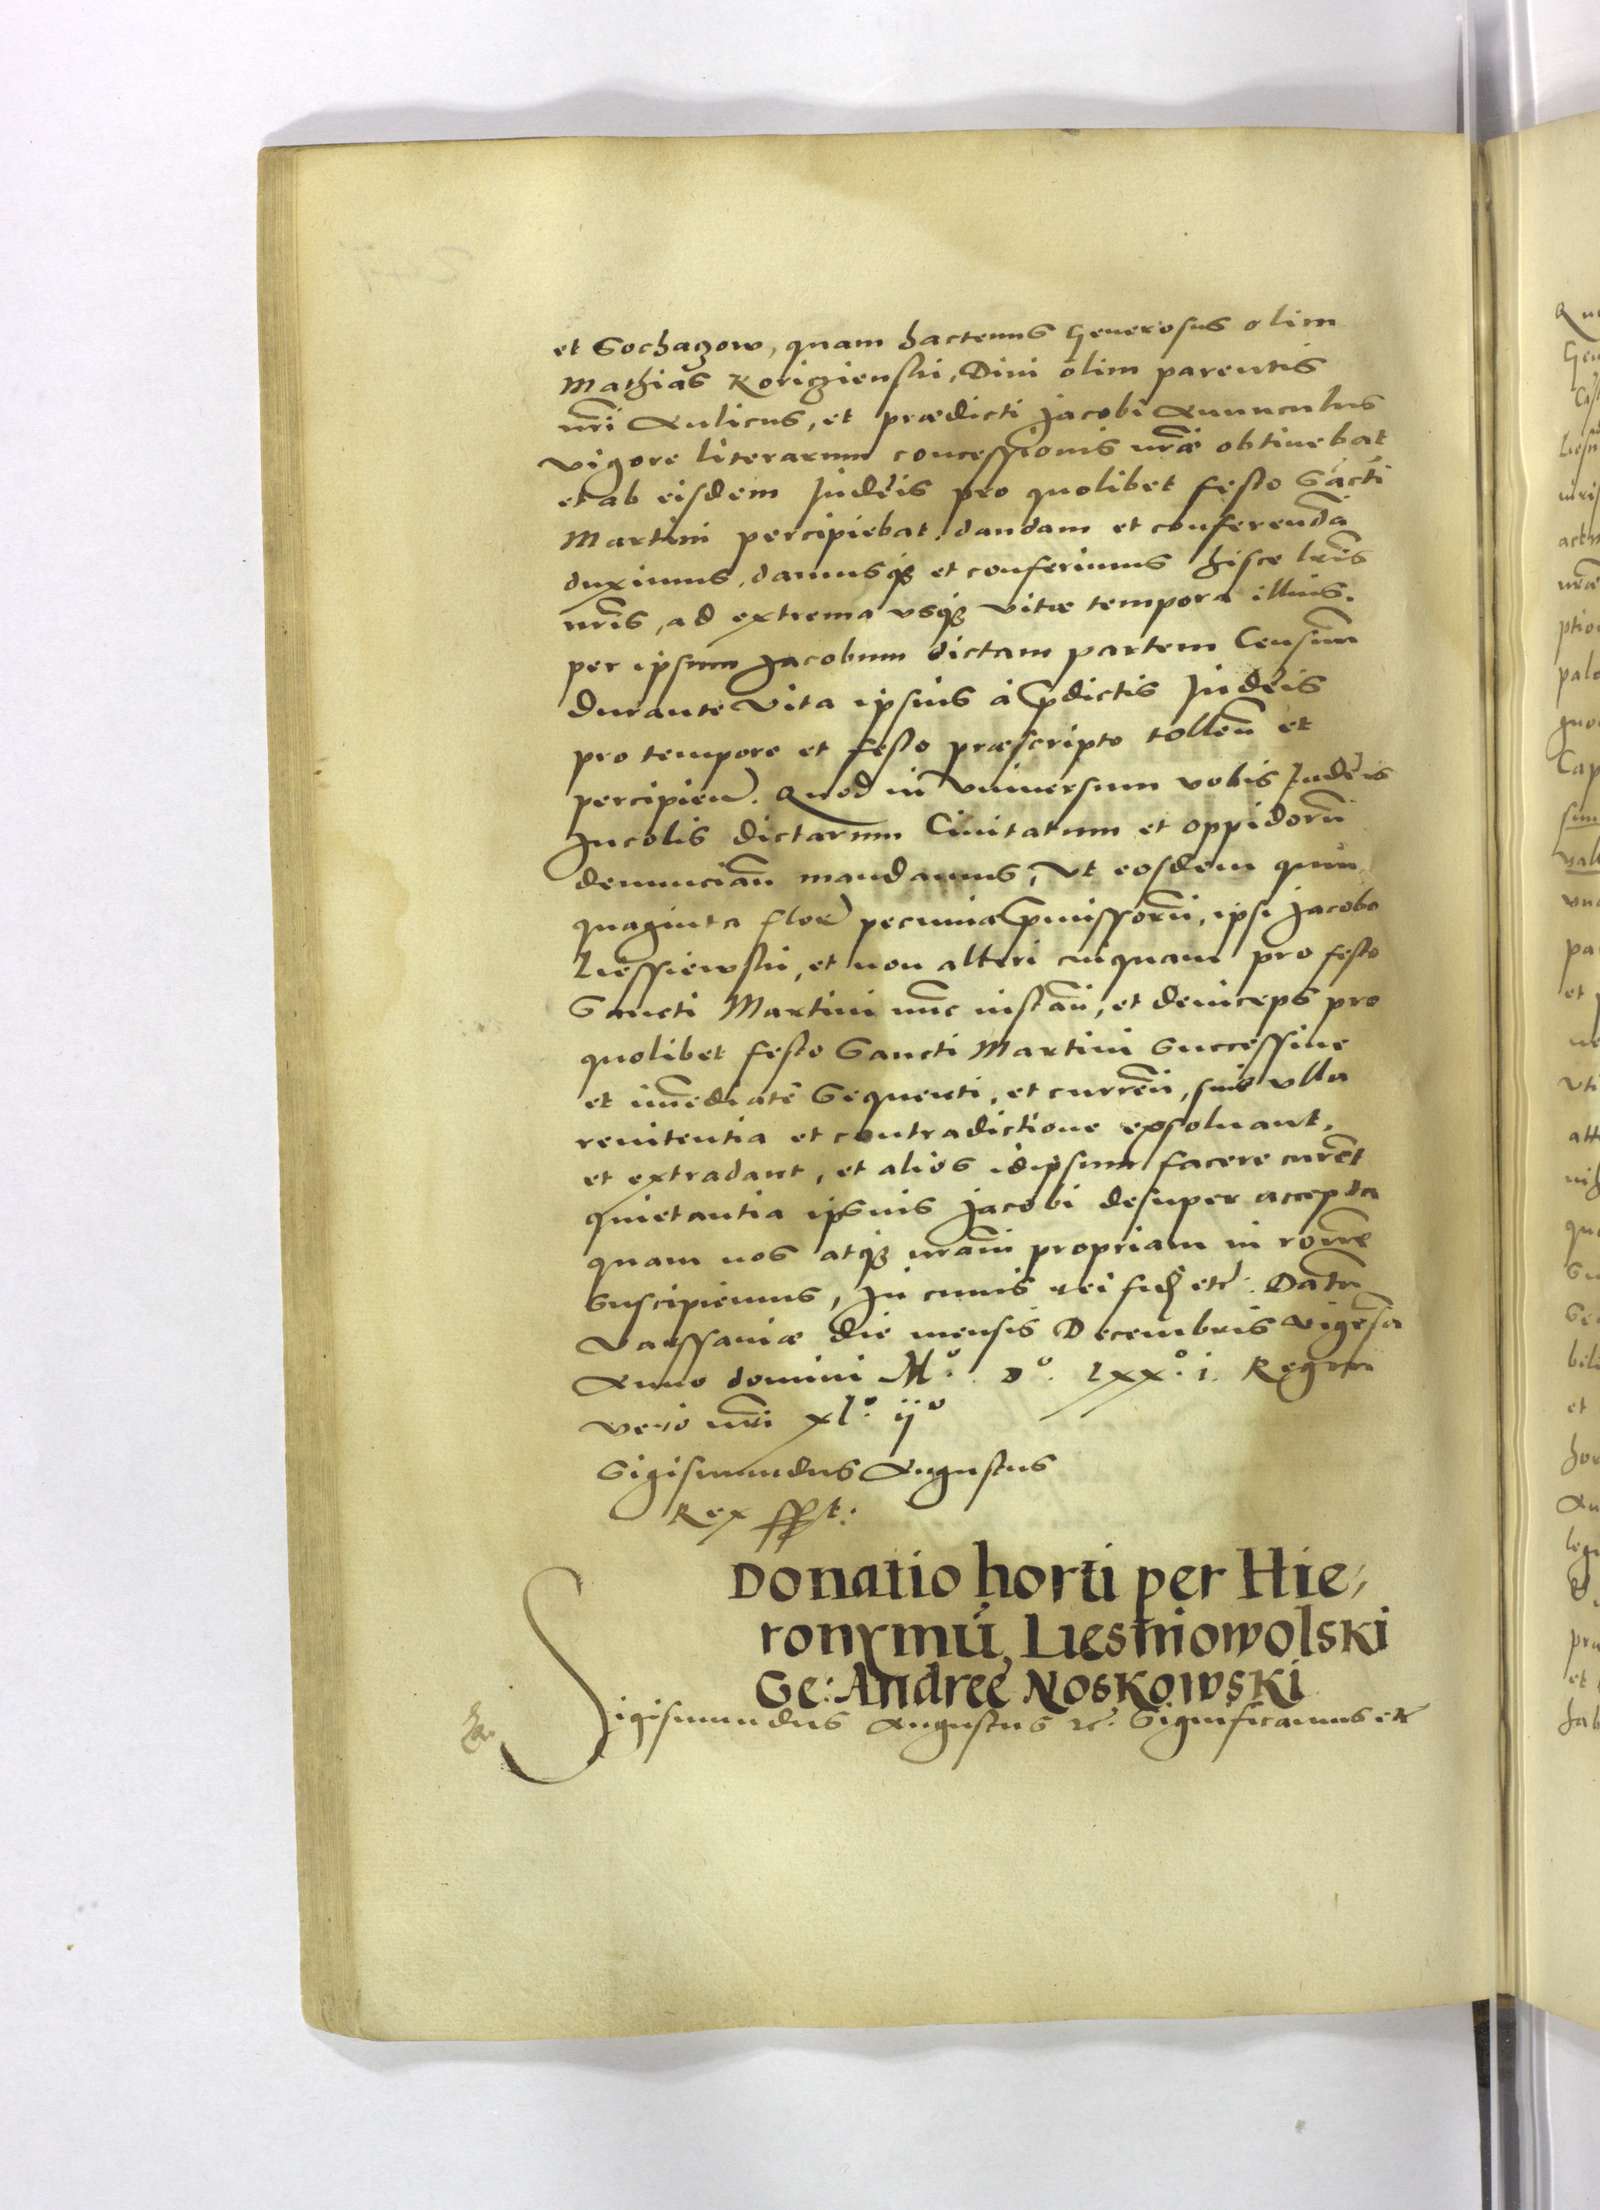 et Sochaczow, quam hactenus Generosus olim
Mathias Koriczienski, Diui olim parentis
nri Aulicus, et prædicti Jacobi Auunculus
vigore literarum concessionis nræ obtinebat
et ab eisdem Judeis pro quolibet festo Sācti
Martini percipiebat, dandam et conferendā
duximus, damusq3 et conferimus hisce lris
nris, ad extrema vsq3 vitæ tempora illius.
per ipsum Jacobum dictam partem Censuū
durante vita ipsius à p̄dictis Judeis
pro tempore et festo præscripto tollen̄ et
percipien̄. Quod in vniuersum vobis Judeis
Incolis dictarum Ciuitatum et oppidorū
denuncian̄ mandamus, Vt eosdem quin
quaginta flor pecuniæ p̄missorū, ipsi Jacobo
Liessiewski, et non alteri cuiquam pro festo
Sancti Martini nūc instan̄, et deinceps pro
quolibet festo Sancti Martini Successiue
et im̄ediate Sequenti, et curren̄, sine vlla
renitentia et contradictione exsoluant,
et extradant, et alios idipsum facere curēt
quietantia ipsius Jacobi desuper accepta
quam nos atq3 nram propriam in rōnē
Suscipiemus, In cuius rei fid etc: Datū
Varssauiæ die mensis Decembris vigesa
Anno domini Mº. Dº. lxxº. i. Regni
vero nri xlº. ijº
Sigismundus Augustus
Rex sspt:
Donatio horti per Hie,
ronymū Liesniowolski
Ge: Andreę Noskowski
Sigismundus Augustus etc. Significamus etc